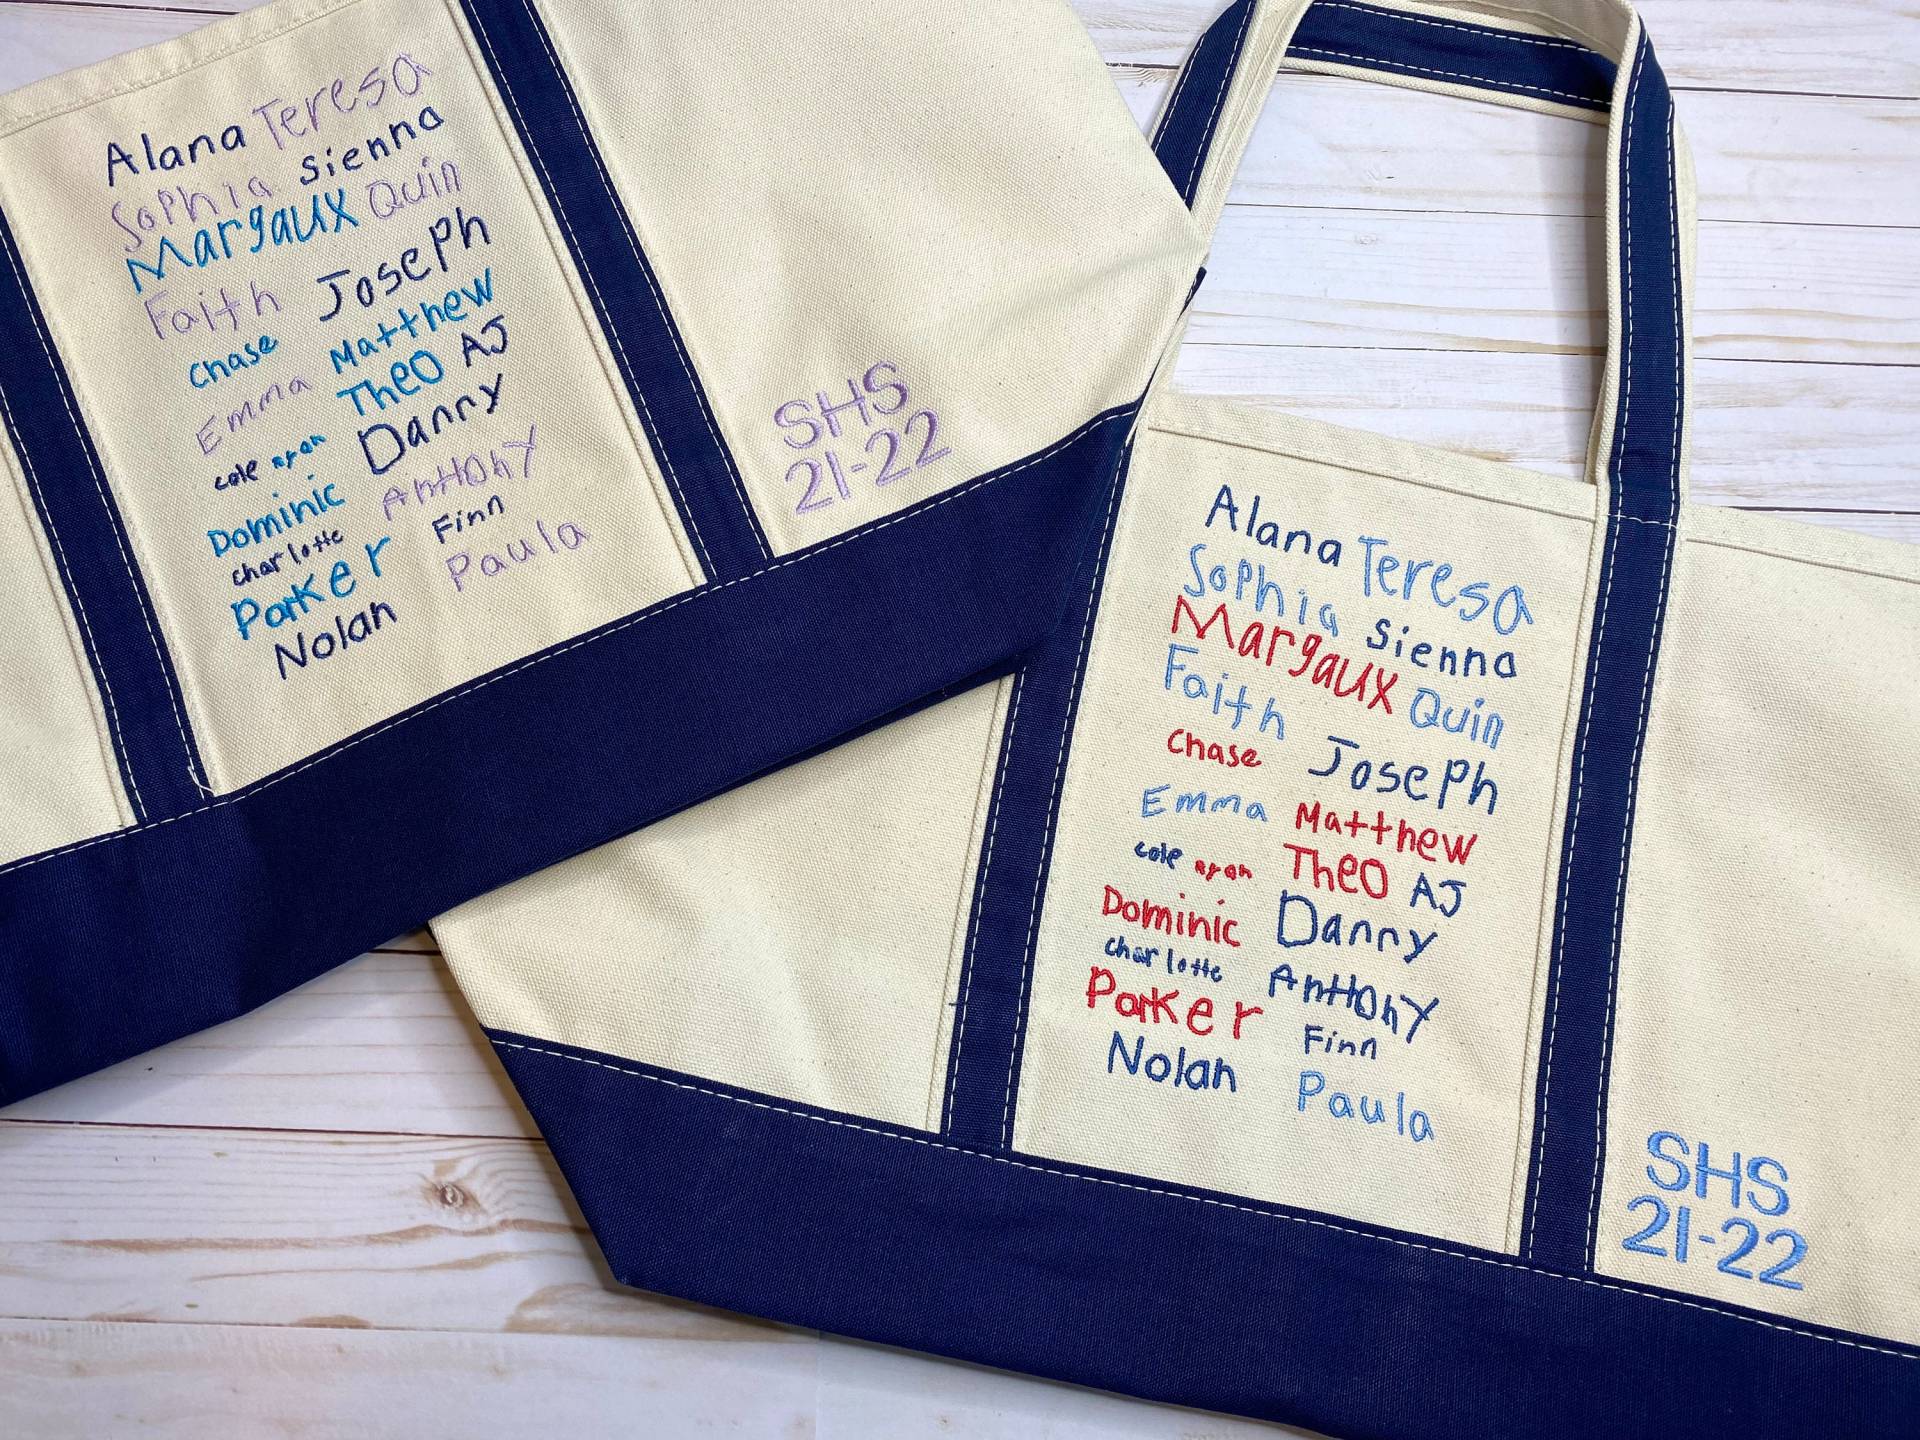 Alana Teresa
Sophia sienna
Margaux Quin
Faith Joseph
chase Matthew
Emma Theo AJ
cole ryan Danny
Dominic AntHOhY
charlotte Finn
Parker Paula
Nolan
SHS
21-22
Alana Teresa
Sophia sienna
Margaux Quin
Faith Joseph
chase
Emma Matthew
cole ryan Theo AJ
Dominic Danny
charlotte AntHOhY
Parker Finn
Nolan Paula
SHS
21-22